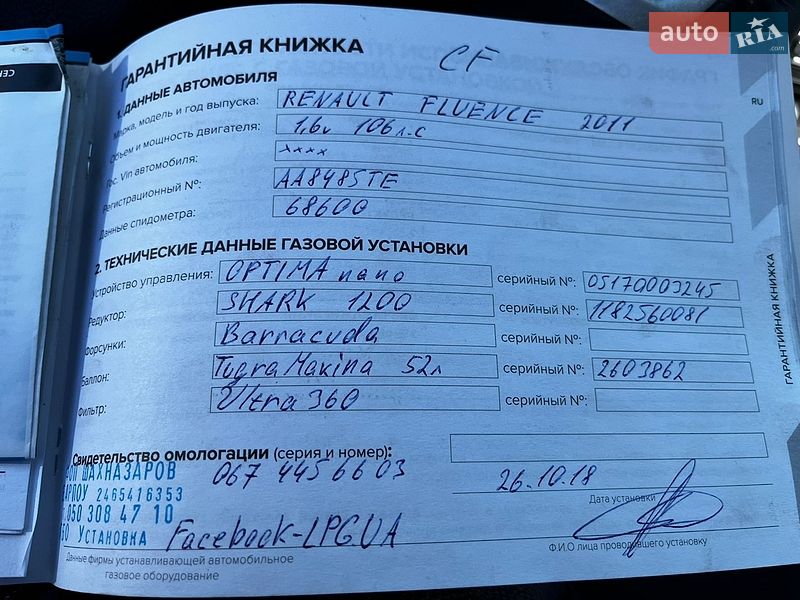 auto RIA .com
ГАРАНТИЙНАЯ КНИЖКА CF
RU
1. ДАННЫЕ АВТОМОБИЛЯ
Марка, модель и год выпуска: RENAULT FLUENCE 2011
Объем и мощность двигателя: 1,6v 106 л.с
Гос. Vin автомобиля: хххх
Регистрационный №: AA8485TE
Данные спидометра: 68600
2. ТЕХНИЧЕСКИЕ ДАННЫЕ ГАЗОВОЙ УСТАНОВКИ
Устройство управления: OPTIMA nano серийный №: 05170003245
Редуктор: SHARK 1200 серийный №: 1182560081
Форсунки: Barracuda серийный №:
Баллон: TugraMakina 52л серийный №: 2603862
Фильтр: Ultra 360 серийный №:
Свидетельство омологации (серия и номер):
ШАХНАЗАРОВ 067 4456603
2465416353 26.10.18
050 308 47 10 Дата установки
Установка Facebook-LPGUA
Ф.И.О лица проводившего установку
Данные фирмы устанавливающей автомобильное
газовое оборудование
ГАРАНТИЙНАЯ КНИЖКА